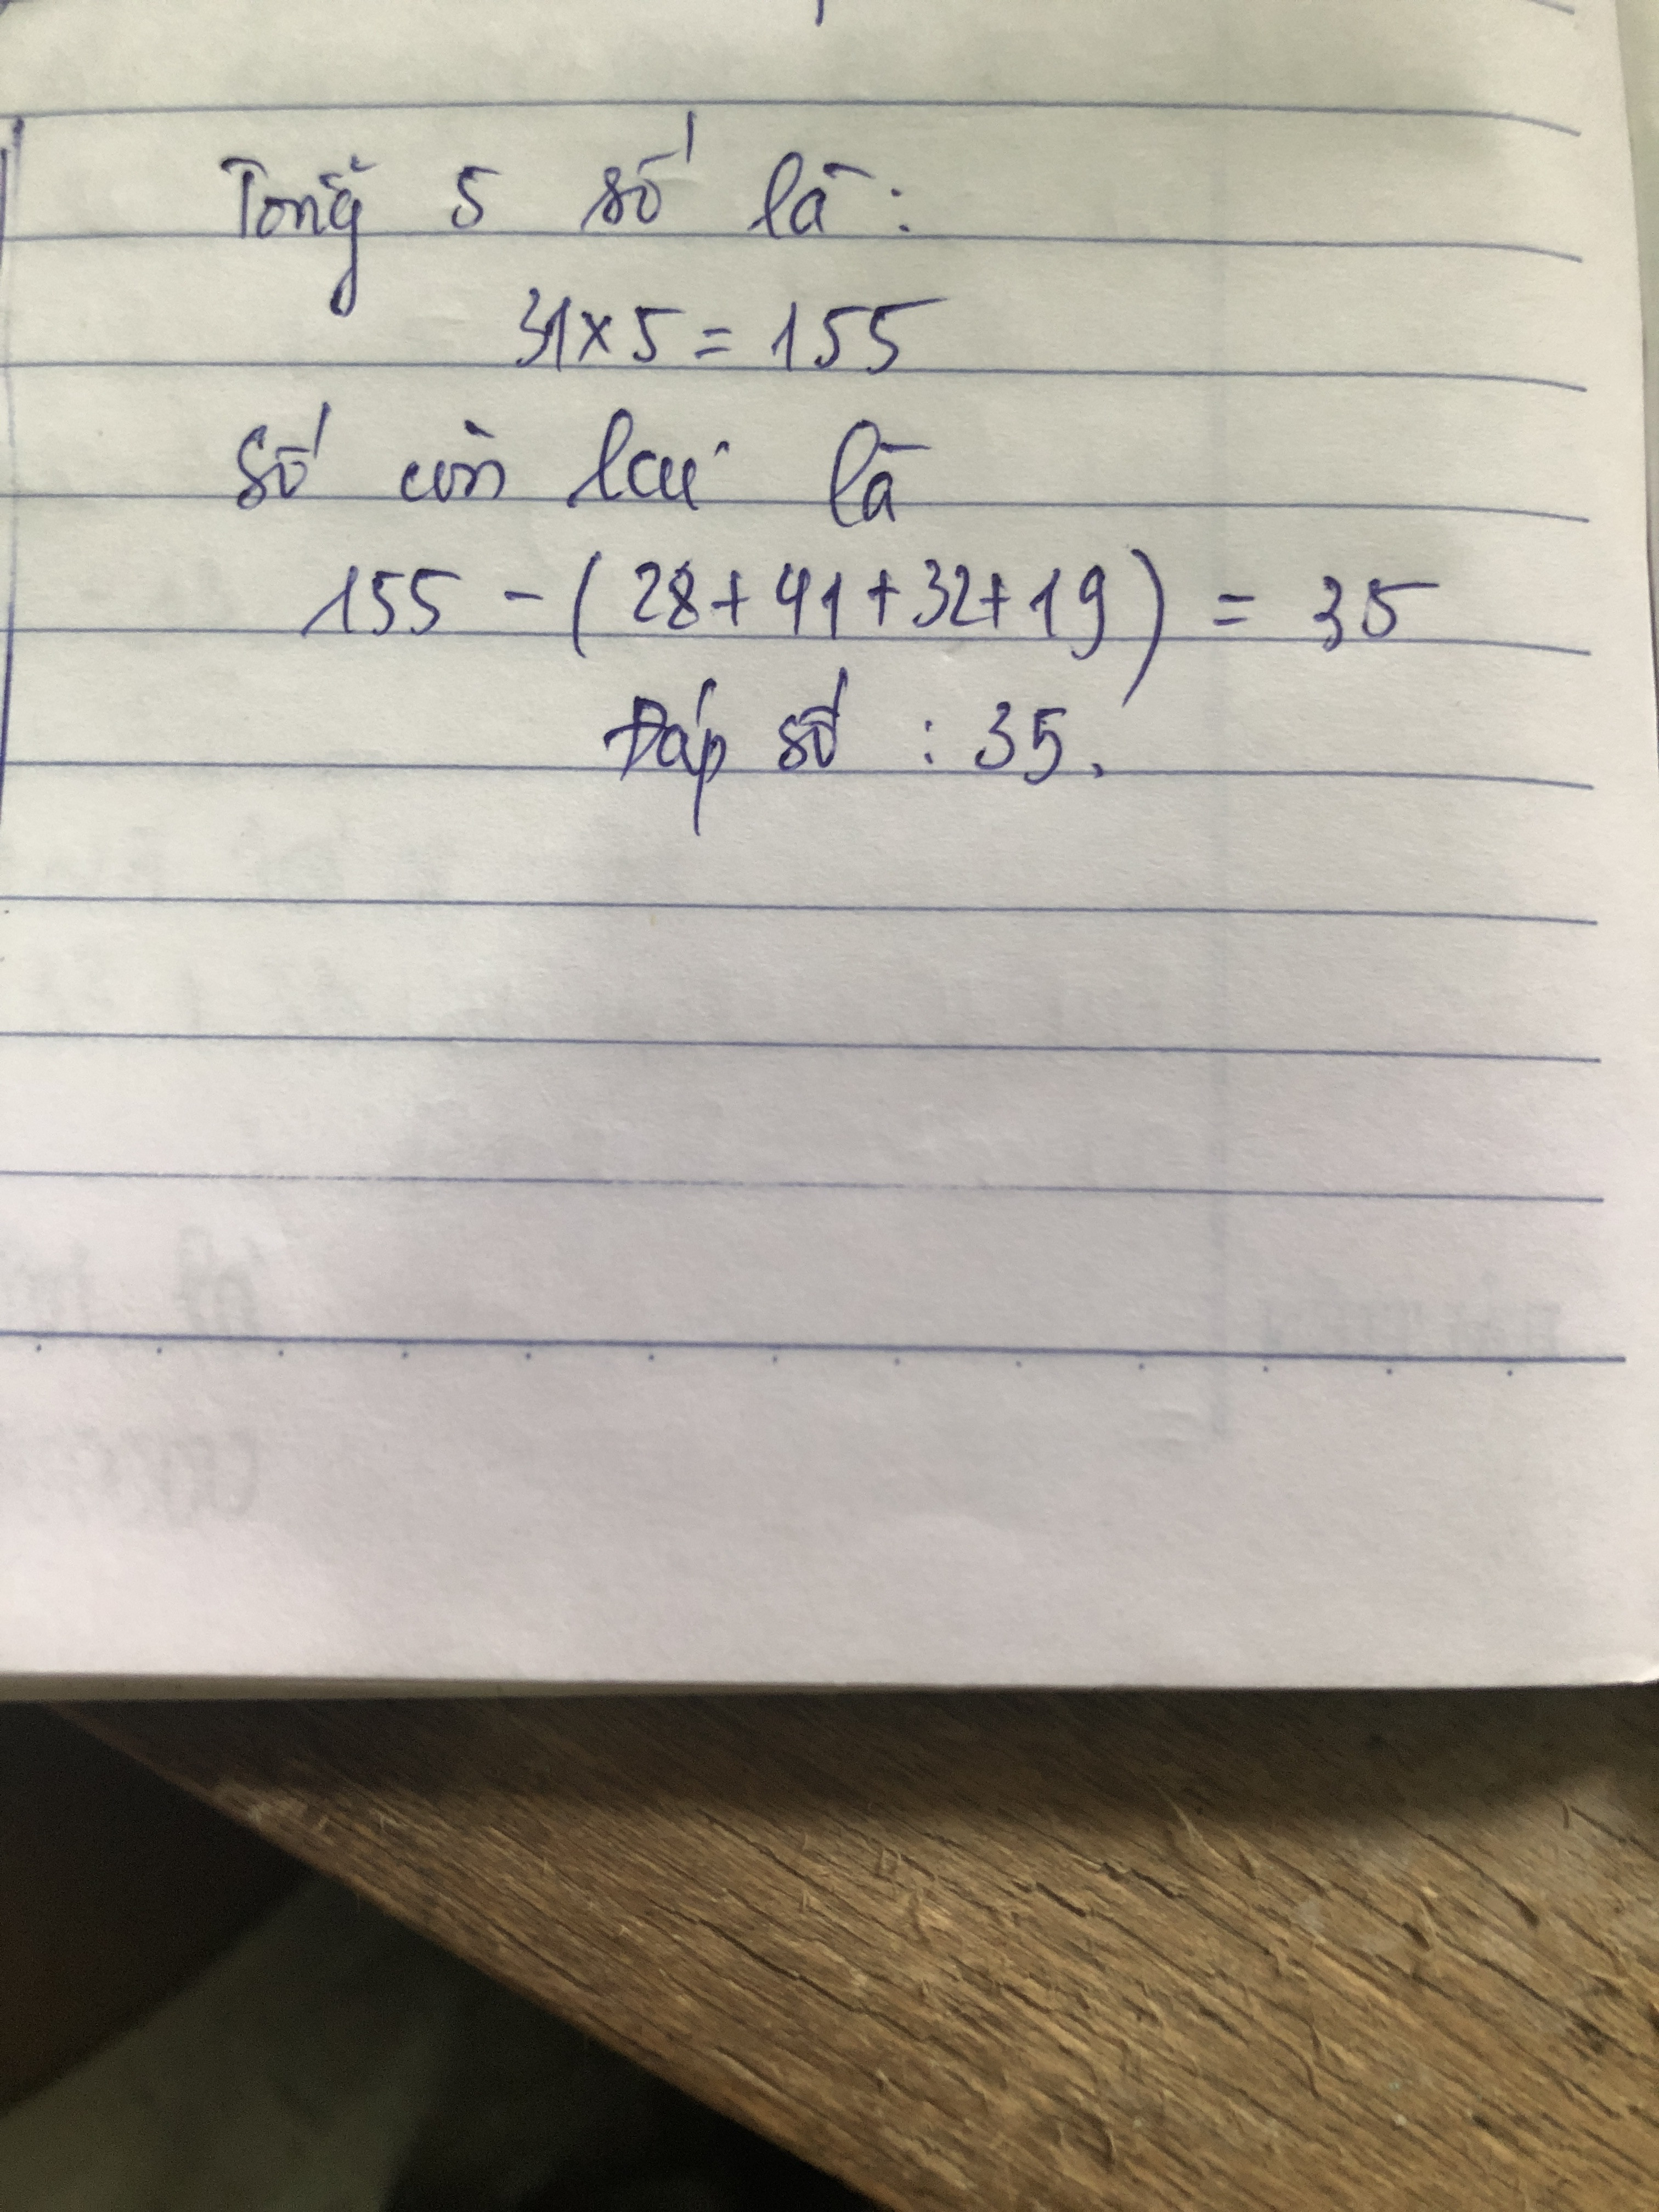 Tổng 5 số là:
31x5 = 155
Số còn lại là
155 - ( 28 + 41 + 32 + 19 ) = 35
Đáp số : 35.